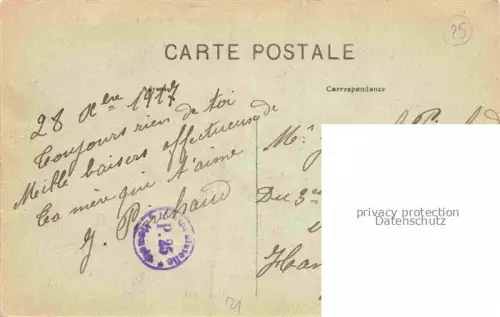 25
CARTE POSTALE
Adresse
Correspondance
28 Xbre 1917
Toujours rien de toi
Mille baisers affectueux de
Ta mère qui t'aime
J.
P. 25
Du 3e
privacy protection
Datenschutz